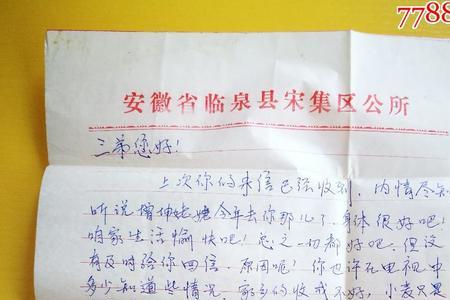 7788
安徽省临泉县宋集区公所
三弟您好!
上次你的来信已经收到,内情尽知
听说曾伸姥姥今年去你那儿了,身体很好吧!
咱家生活愉快吧!总之一切都好吧。但没
有及时给你回信,原因呢!你也许在电视中
多少知道些情况,家乡的收成不好,小麦只是